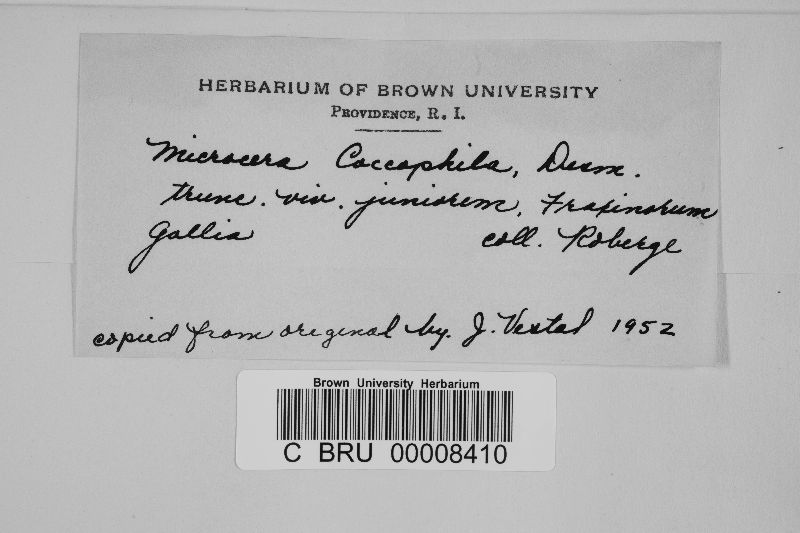 HERBARIUM OF BROWN UNIVERSITY
PROVIDENCE, R. I.
Microcera Coccophila, Desm.
trunc. viv. juniorem, Fraxinorum
Gallia coll. Roberge
copied from original by. J. Vestal 1952
Brown University Herbarium
C BRU 00008410